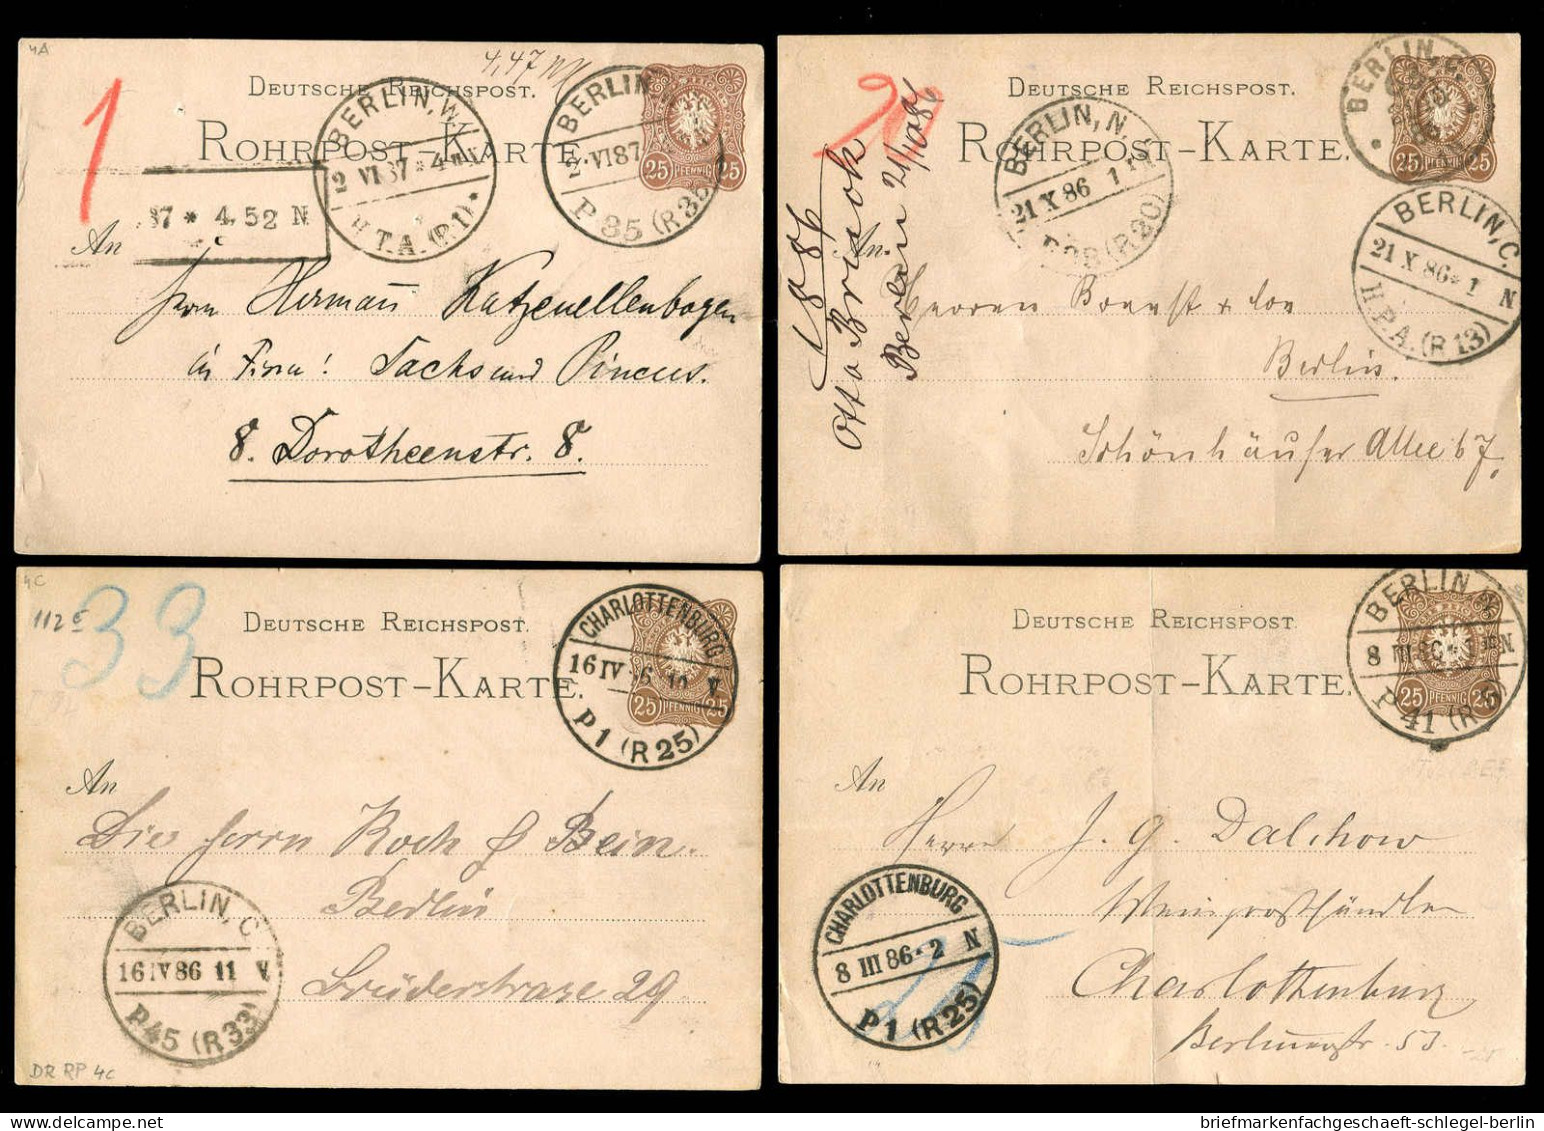 4A
4,47 N
1
DEUTSCHE REICHSPOST.
ROHRPOST-KARTE.
BERLIN, W.
2 VI 87 * 4
H.T.A. (R.1) *
BERLIN
2. VI 87
P. 35 (R 35
25 PFENNIG 25
87 * 4,52 N
An
Herrn Hermann Katzenellenbogen
in Firma! Sachs und Pincus.
8. Dorotheenstr. 8.
20
1886
Otto Brismok
Berlin 21/10 86
DEUTSCHE REICHSPOST.
ROHRPOST-KARTE.
BERLIN, N.
21 X 86 1 N
(R 20)
BERLIN
25 PFENNIG 25
BERLIN, C.
21 X 86 * 1 N
H.P.A. (R 13)
An
Herren
Berlin.
Schönhäuser Allee 67.
4C
112 c
33
DEUTSCHE REICHSPOST.
ROHRPOST-KARTE.
CHARLOTTENBURG
16 IV 86 10 V
P 1 (R 25)
25 PFENNIG 25
An
Die Herrn Koch & Bein.
Berlin
Brüderstrasse 29
BERLIN, C
16 IV 86 11 V.
P.45 (R 33)
DR RP 4c
DEUTSCHE REICHSPOST
ROHRPOST-KARTE.
BERLIN, W.
8 III 86 * 1 N
P 41 (R 5)
25 PFENNIG 25
An
Herrn J. G. Dalchow
Weingrosshändler
Charlottenburg
Berlinerstr. 53.
CHARLOTTENBURG
8 III 86 * 2 N
P 1 (R 25)
25
briefmarkenfachgeschaeft-schlegel-berlin